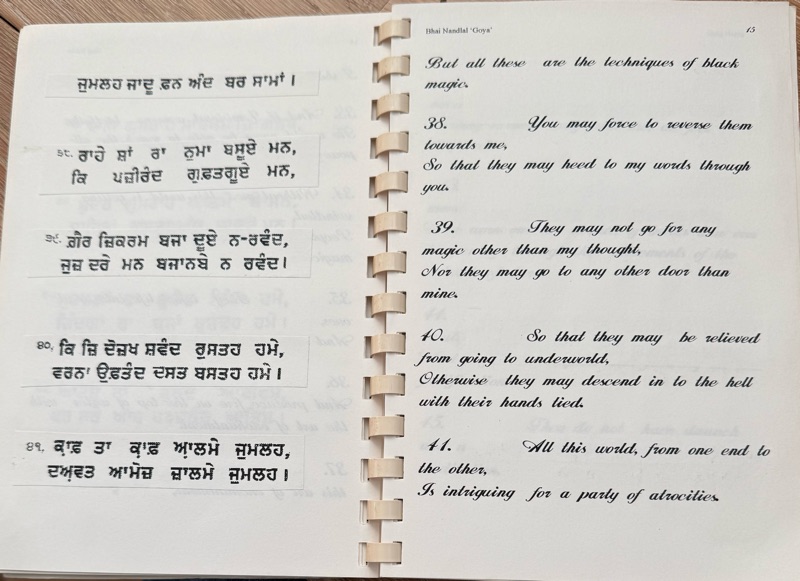 ਜੁਮਲਹ ਜਾਦੂ ਫ਼ਨ ਅੰਦ ਬਰ ਸਾਮਾਂ।
੩੮. ਰਾਹੇ ਸ਼ਾਂ ਰਾ ਨੁਮਾ ਬਸੂਏ ਮਨ,
ਕਿ ਪਜ਼ੀਰੰਦ ਗੁਫ਼ਤਗੂਏ ਮਨ,
੩੯. ਗ਼ੈਰ ਜ਼ਿਕਰਮ ਬਜਾ ਦੂਏ ਨ-ਰਵੰਦ,
ਜੁਜ਼ ਦਰੇ ਮਨ ਬਜਾਨਬੇ ਨ ਰਵੰਦ।
੪੦. ਕਿ ਜ਼ਿ ਦੋਜ਼ਖ ਸ਼ਵੰਦ ਰੁਸਤਹ ਹਮੇ,
ਵਰਨਾ ਉਫ਼ਤੰਦ ਦਸਤ ਬਸਤਹ ਹਮੇ।
੪੧. ਕਾਫ਼ ਤਾ ਕਾਫ਼ ਆਲਮੇ ਜੁਮਲਹ,
ਦਅਵਤ ਆਮੋਜ਼ ਜ਼ਾਲਮੇ ਜੁਮਲਹ।
Bhai Nandlal 'Goya' 15
But all these are the techniques of black
magic.
38. You may force to reverse them
towards me,
So that they may heed to my words through
you.
39. They may not go for any
magic other than my thought,
Nor they may go to any other door than
mine.
40. So that they may be relieved
from going to underworld,
Otherwise they may descend in to the hell
with their hands tied.
41. All this world, from one end to
the other,
Is intriguing for a party of atrocities.